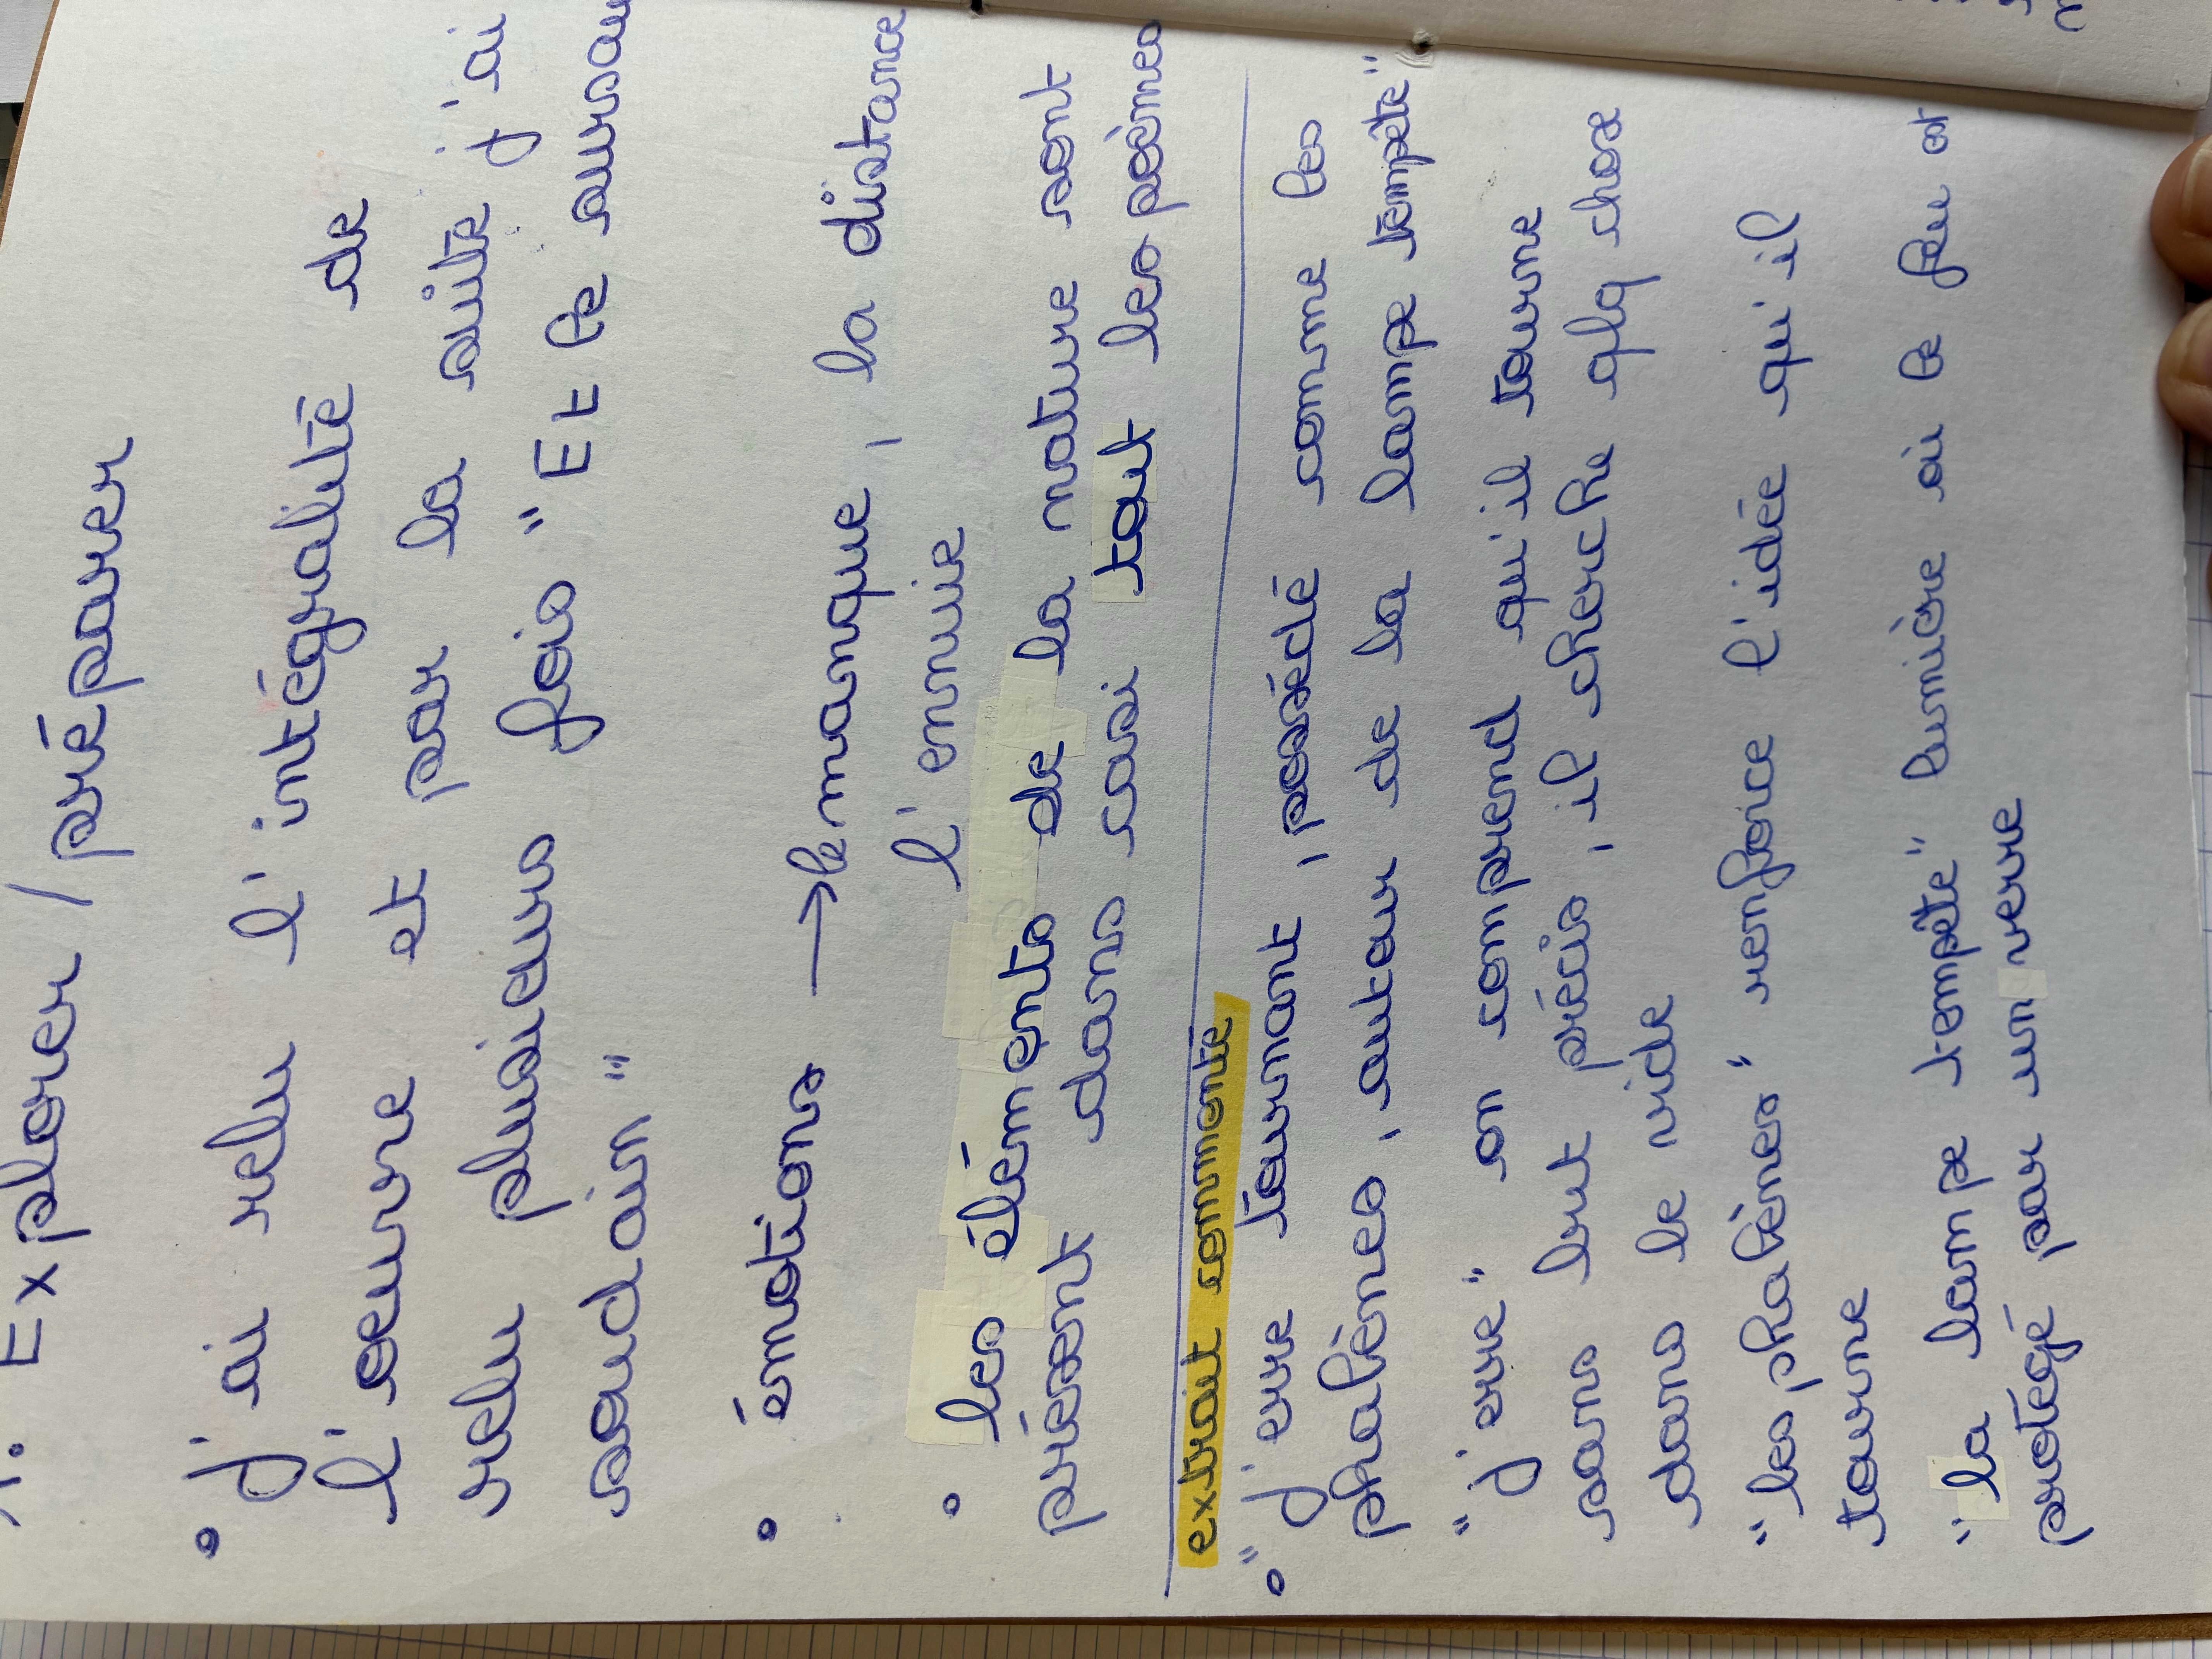 1. Explorer / préparer
• j'ai relu l'intégralité de
l'oeuvre et par la suite j'ai
relu plusieurs fois "Et le sursau
soudain"
• émotions → le manque, la distance
l'ennuie
• les éléments de la nature sont
présent dans casi tout les poèmes
extrait commenté
• "j'erre tournant, possédé comme les
phalènes, autour de la lampe tempête"
"j'erre" on comprend qu'il tourne
sans but précis, il cherche qlq chose
dans le vide
"les phalènes" renforce l'idée qu'il
tourne
"la lampe tempête" lumière où le feu est
protégé par un verre